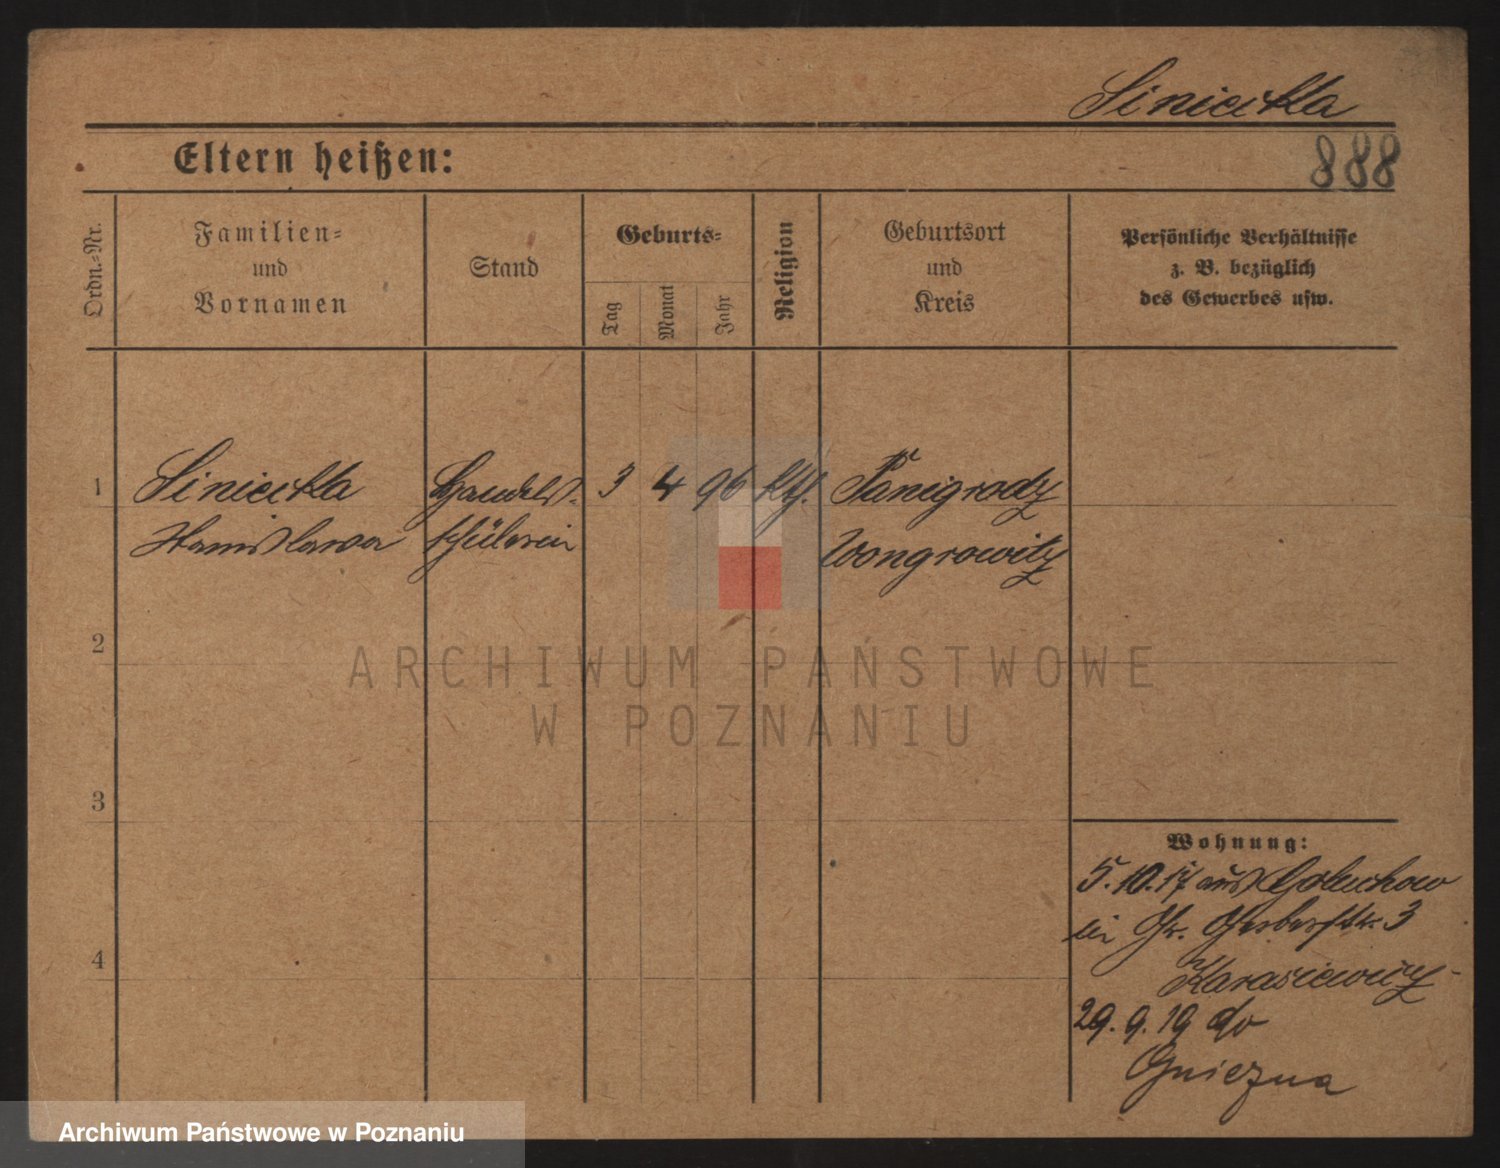 Siniecka
Eltern heißen:
888
Ordn.-Nr.
Familien-
und
Vornamen
Stand
Geburts-
Tag
Monat
Jahr
Religion
Geburtsort
und
Kreis
Persönliche Verhältnisse
z. B. bezüglich
des Gewerbes usw.
1 Siniecka Handels- 3 4 96 kth. Panigrodz
Stanislawa schülerin Wongrowitz
2
3
4
Wohnung:
5.10.17 aus Goluchow
bei Gr. Gerberstr. 3
Karasiewicz
29.9.19 do
Gniezna
ARCHIWUM PAŃSTWOWE
W POZNANIU
Archiwum Państwowe w Poznaniu